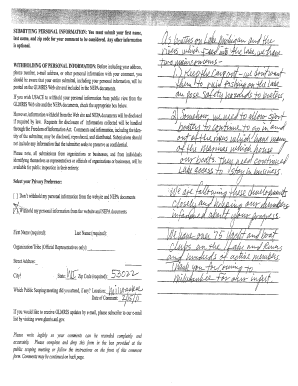 SUBMITTING PERSONAL INFORMATION: You must submit your first name,
last name, and zip code for your comment to be considered. Any other information
is optional.
WITHHOLDING OF PERSONAL INFORMATION: Before including your address,
phone number, e-mail address, or other personal information with your comment, you
should be aware that your entire comment, including your personal information, will be
posted on the GLMRIS Web site and included in the NEPA documents.
If you wish USACE to withhold your personal information from public view from the
GLMRIS Web site and the NEPA documents, check the appropriate box below.
However, information withheld from the Web site and NEPA documents will be disclosed
if required by law. Requests for disclosure of information collected will be handled
through the Freedom of Information Act.
include any information that the submitter seeks to preserve as confidential.
Please note, all submissions from organizations or businesses, and from individuals
identifying themselves as representatives or officials of organizations or businesses, will be
available for public inspection in their entirety.
Select your Privacy Preference:
[ ] Don't withhold my personal information from the website and NEPA documents
Withhold my personal information from the website and NEPA documents.
First Name (required): Last Name (required):
Organization/Tribe (Official Representatives only):
Street Address:
City: State: WI Zip Code (required): 53022
Which Public Scoping meeting did you attend, if any? Location: Milwaukee
Date of Comment:
If you would like to receive GLMRIS updates by e-mail, please subscribe to our e-mail
list by visiting www.glmris.anl.gov.
Please write legibly so your comments can be recorded completely and
accurately. Please complete and drop this form in the box provided at the
public scoping meeting or follow the instructions on the front of this comment
form. Comments may be continued on back page.
As boaters on Lake Michigan and the
rivers which feed into the lake, we have
two main concerns -
on your safety
2) Secondly, we need to allow sport
boaters to continue to go in and
out of the rivers which have many
of the marinas which store
our boats. They need continued
lake access to stay in business.
We are following these developments
closely and keeping our members
informed about your progress.
We have over 75 yacht and boat
clubs on the Lake and Rivers
and hundreds of active members.
Thank you for coming to
Milwaukee for our input.